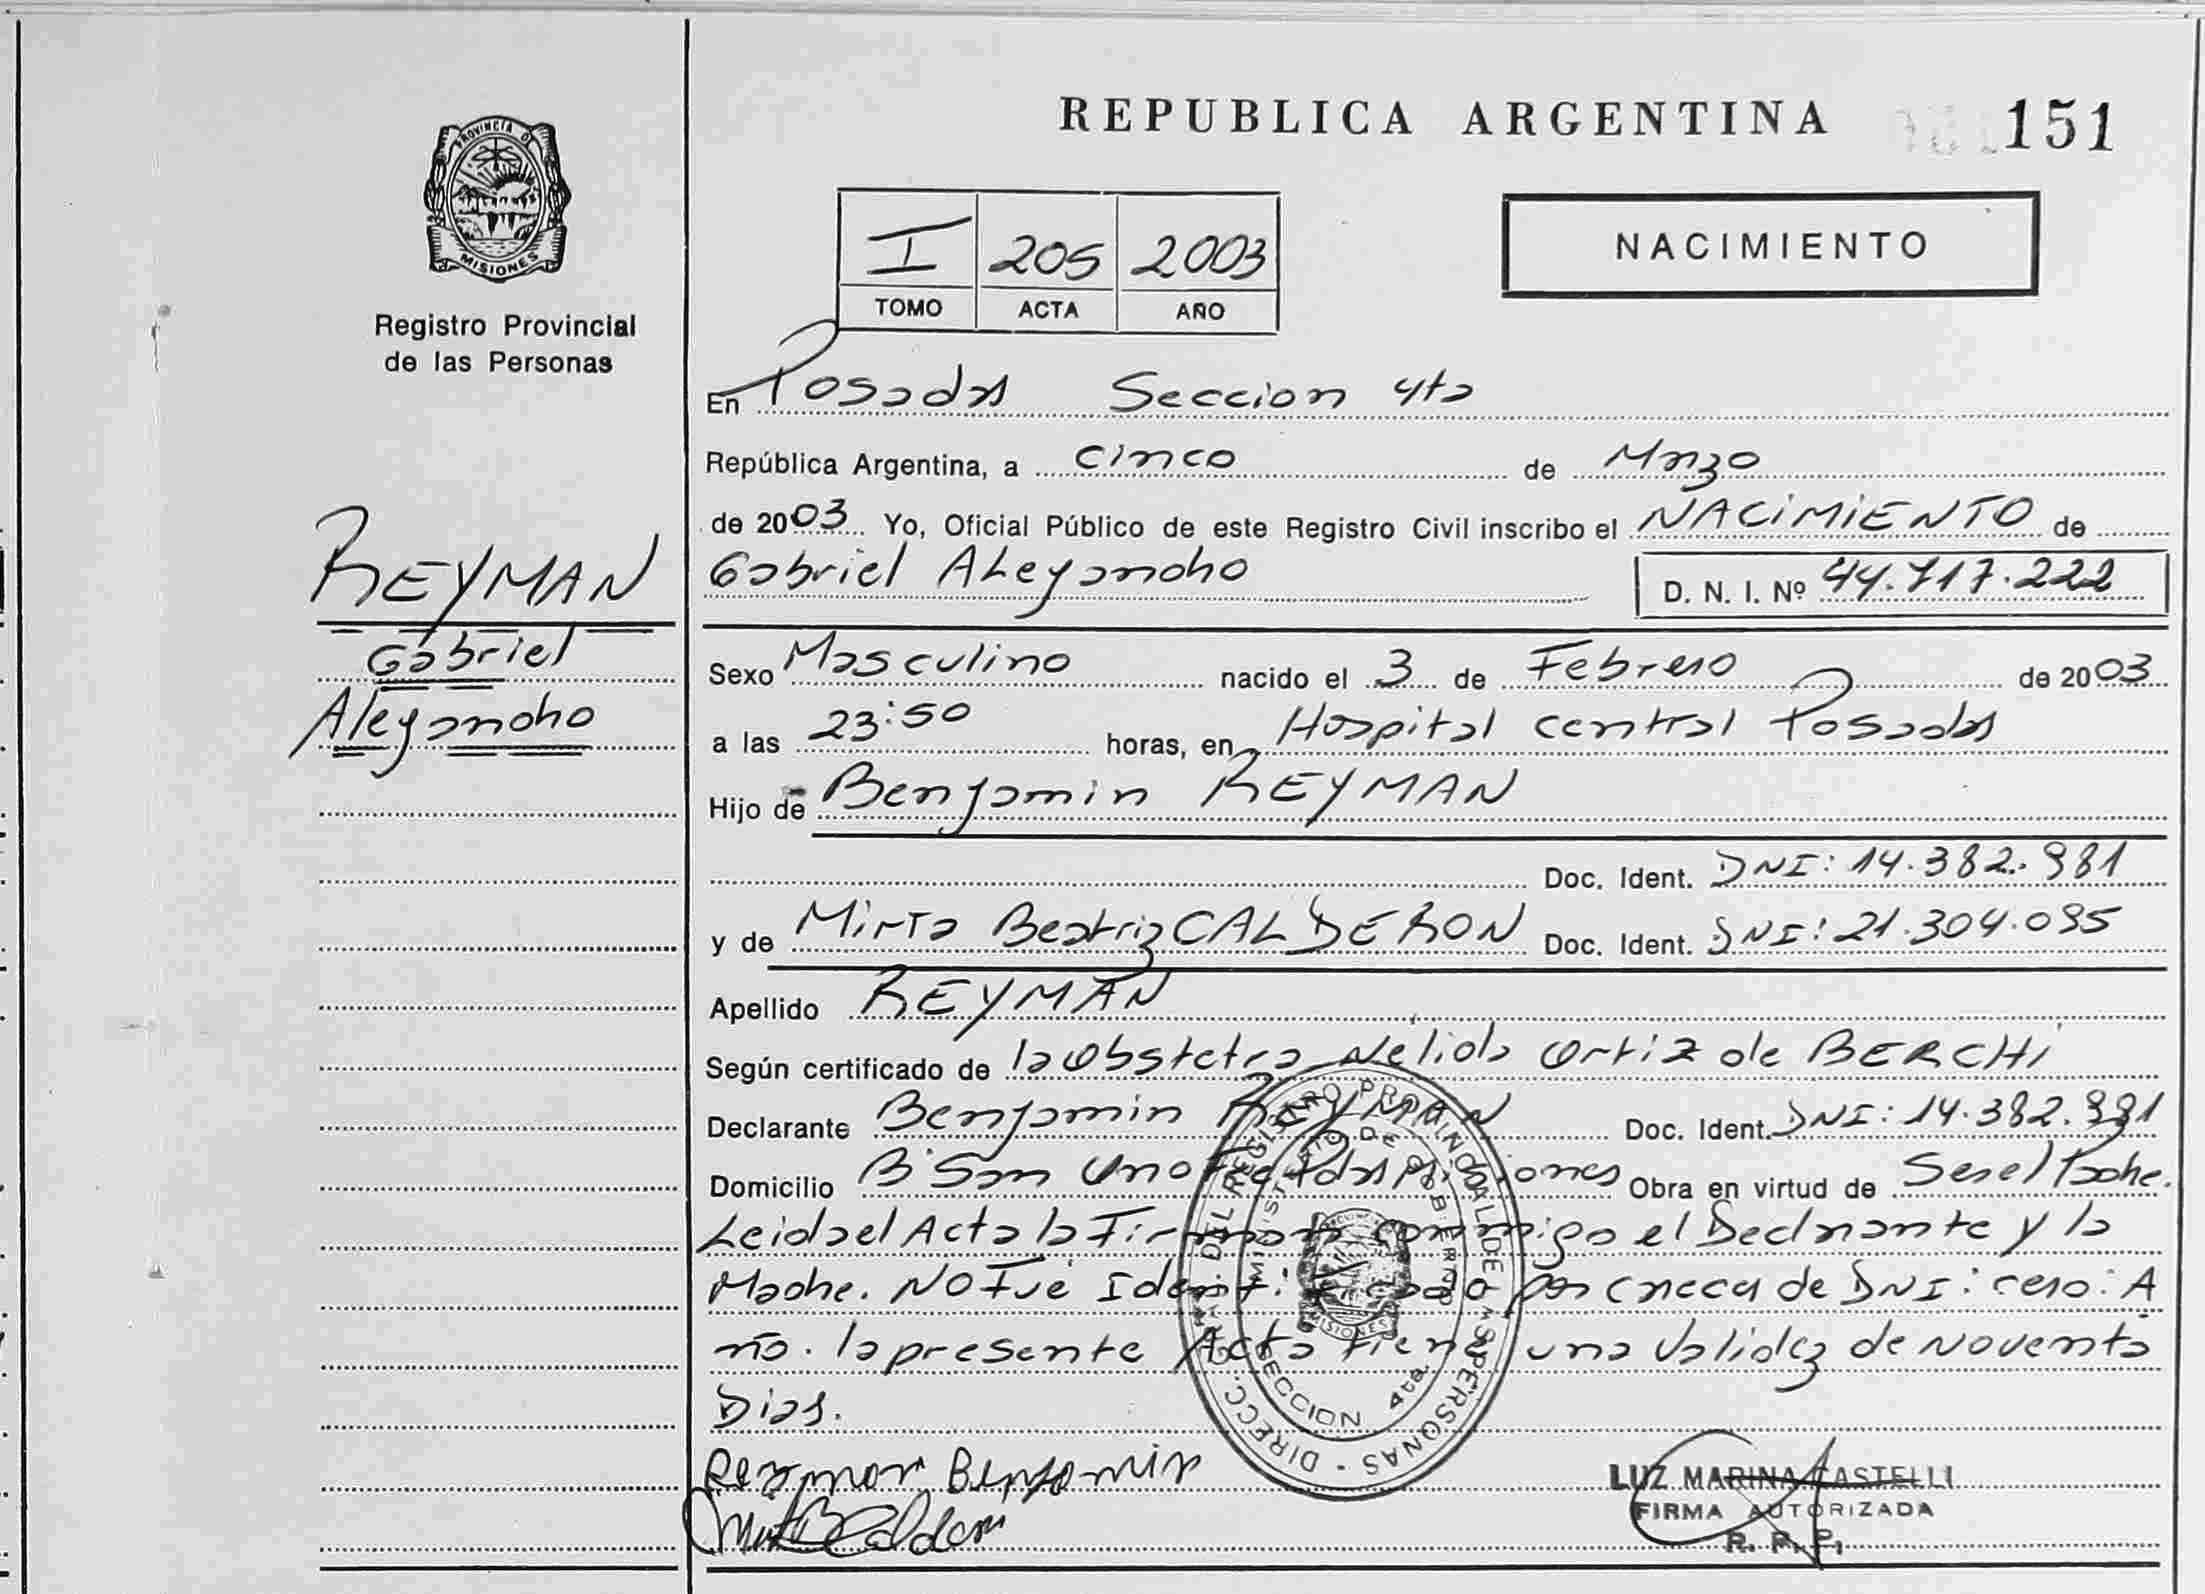 REPUBLICA ARGENTINA 151
PROVINCIA D
MISIONES
Registro Provincial
de las Personas
I 205 2003
TOMO ACTA AÑO
NACIMIENTO
En Posadas Seccion 4ta
República Argentina, a cinco de Marzo
de 2003 Yo, Oficial Público de este Registro Civil inscribo el NACIMIENTO de
Gabriel Alejandro D. N. I. Nº 44.717.222
REYMAN
Gabriel
Alejandro
Sexo Masculino nacido el 3 de Febrero de 2003
a las 23:50 horas, en Hospital central Posadas
Hijo de Benjamin REYMAN
Doc. Ident. DNI: 14.382.981
y de Mirta Beatriz CALDERON Doc. Ident. DNI: 21.304.095
Apellido REYMAN
Según certificado de la Obstetra Nelida Ortiz de BERCHI
Declarante Benjamin REYMAN Doc. Ident. DNI: 14.382.981
Domicilio B° San Onofre Obra en virtud de Ser el Padre.
Leida el Acta la Firman conmigo el Declarante y la
Madre. NO Fué Identificado por carecer de DNI: raso: A
ño. la presente Acta tiene una validez de noventa
Dias.
DIRECC. GRAL. DEL REGISTRO PROVINCIAL DE LAS PERSONAS
MINISTERIO DE GOBIERNO
MISIONES
SECCION 4ta
Reyman Benjamin
LUZ MARINA CASTELLI
FIRMA AUTORIZADA
R. P. P.